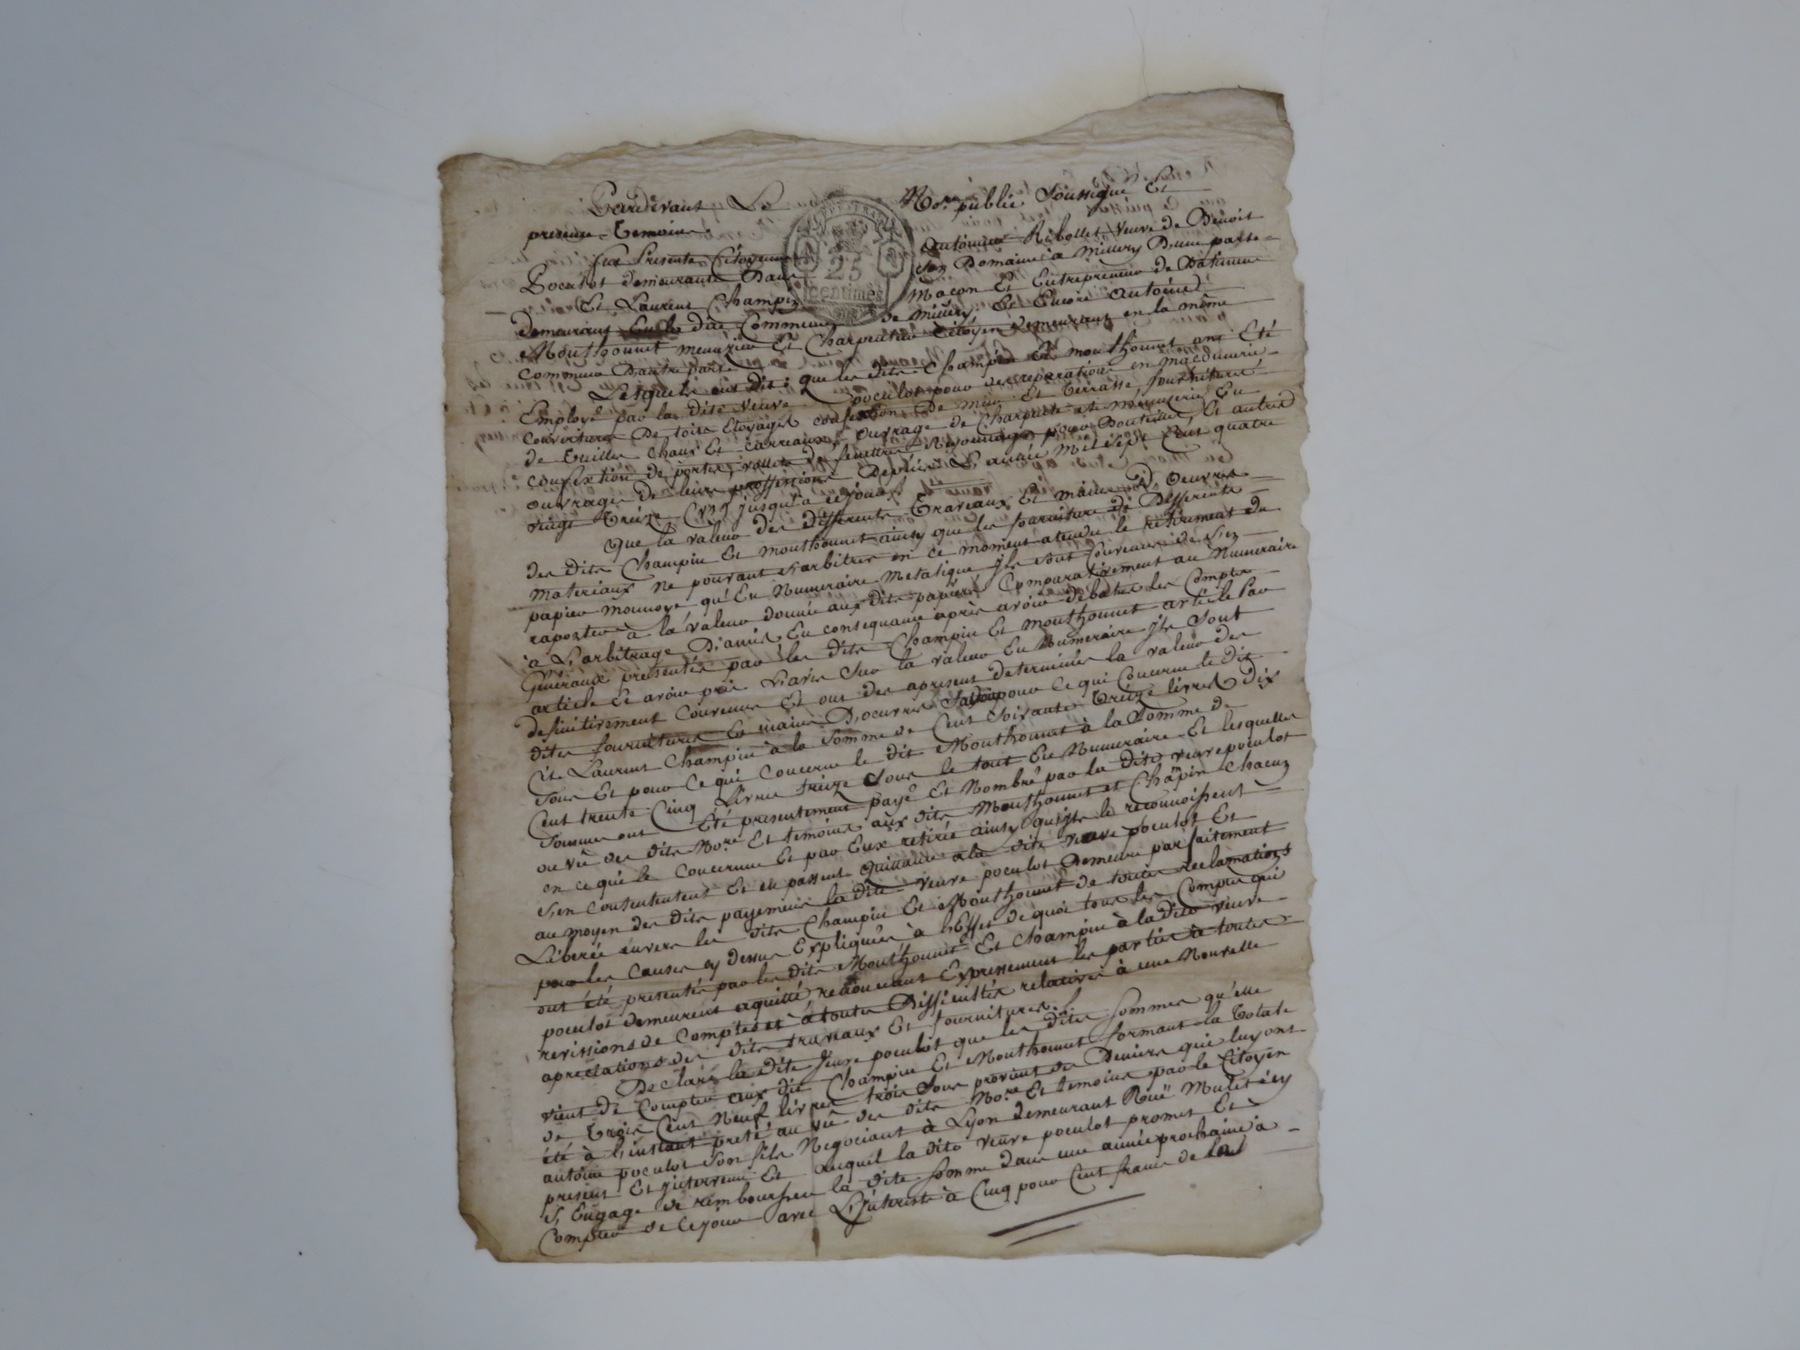 Pardevant Le Nore public Soussigné Et
presence Temoins.
fut Presente Citoyenne antoinne Ribollet veuve de Benoit
Poculot demeurante Dans son Domaine à Millery D'une parte
25
centimes
Et Laurent Champin Macon Et Entrepreneur de Batiment
demeurant dite Commune de Millery. Et Encore Antoine
Mouthonnet menuzier Et Charpentier Citoyen demeurant en la même
Commune D'autre parte
Lesquels ont dit : que les dits Champin Et mouthonnet ont Eté
Employé par la dite veuve poculot pour des reparations en maconnerie
Couverture De toits Etoyages confection De mur Et terrasse, fourniture
de Tuilles Chaux Et Carreaux, Ouvrage de Charpente et menuzerie En
confection de portes, vollets De fenettre pour Bouteilles Et autres
ouvrages De leurs proffessions Depuis L'année Mil sept Cent quatre
vingt Treize jusqu'à ce jour
Que la valeur des differents Traveaux Et mains D'oeuvres
des dits Champin Et mouthonnet ainsy que les fourniture de Differents
materiaux ne pouvant s'arbitrer en ce moment atendu le retirement du
papier monnoye qu'En Numeraire Metalique, jls sont Convenus de s'en
raporter à la valeur donnée aux dits papiers Comparativement au Numeraire
à L'arbitrage D'amis, En consequance après avoir debatus les Compte
Généraux presentés par les dits Champin Et Mouthonnet article Par
article Et avoir pris L'avis sur la valeur En Numeraire jls sont
definitivement Convenus Et ont des apresent determinés la valeur des
dites fournitures Et mains D'oeuvres pour ce qui Concerne le dit
Cit Laurent Champin à la somme de Cent soixante Treize livres Dix
sous Et pour Ce qui Concerne le dit Mouthonnet à la Somme de
Cent trente Cinq Livres treize Sous le tout En Numeraire Et lesquelles
sommes ont Eté presentement payé Et Nombré par la dite veuve poculot
au vû des dits Nore Et temoins aux dits Mouthonnet et Champin Chacun
en ce qui le Concerne Et par Eux retirée ainsy qu'jls le reconnoissent
s'en Contentent Et en passent Quittance a la dite veuve poculot Et
au moyen des dits payements la dite veuve poculot Demeure parfaitement
Liberée envers les dits Champin Et Mouthonnet de toute reclamations
pour les Causes cy dessus Expliquées à l'Effet de quoi tous les Compte qui
ont été presentés par les dits Mouthonnet Et Champin à la dite veuve
poculot demeurent aquitté renoncant Expressement les parties à toutes
revissions de Comptes et à toutes Difficultés relatives à une Nouvelle
apreciations des dits travaux Et fournitures./.
Declare la dite veuve poculot que les dites Sommes qu'elle
vient de Compter aux dit Champin Et Mouthonnet formant la totale
de Trois Cent Neuf livres trois Sous provient de Deniers qui luy ont
été à l'instant preté au vû des dits Nore Et temoins par le Citoyen
antoine poculot son fils Negociant à Lyon demeurant Ruë Mulet icy
present Et jntervenu Et auquel la dite veuve poculot promet Et
s'Engage de rembourser la dite somme dans une année prochaine à
Compter de Ce jour avec L'jnterest à Cinq pour Cent franc de